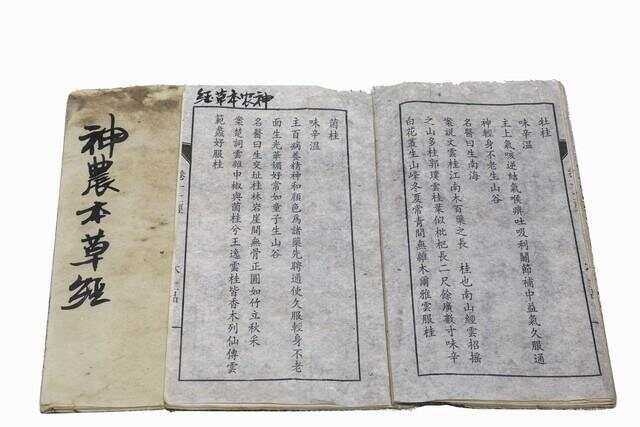 神農本草經
牡桂
味辛溫
主上氣咳逆結氣喉痹吐吸利關節補中益氣久服通
神輕身不老生山谷
名醫曰生南海
案說文雲桂江南木百藥之長　桂也南山經雲招搖
之山多桂郭璞雲桂葉似枇杷長二尺餘廣數寸味辛
白花叢生山峰冬夏常青間無雜木爾雅雲服桂
神农本草經
菌桂
味辛溫
主百病養精神和顏色為諸藥先聘通使久服輕身不老
面生光華媚好常如童子生山谷
名醫曰生交址桂林岩崖間無骨正圓如竹立秋采
案楚詞雲雜申椒與菌桂兮王逸雲桂皆香木列仙傳雲
範蠡好服桂